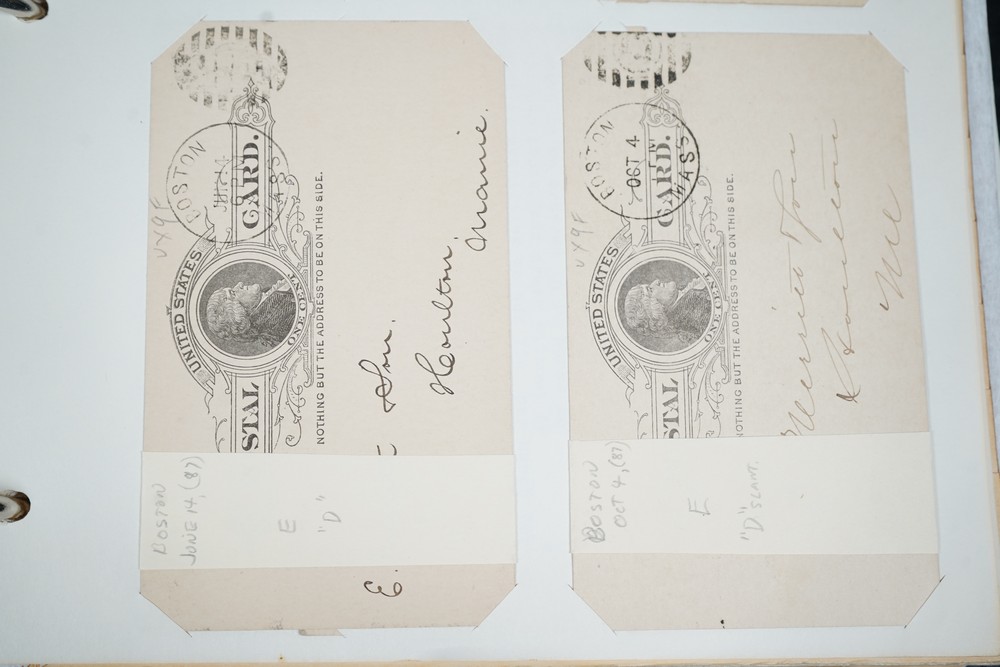 BOSTON
MASS
UX9F
UNITED STATES
STAL CARD.
ONE CENT
NOTHING BUT THE ADDRESS TO BE ON THIS SIDE.
E. & Son.
Houlton
Maine.
BOSTON
JUNE 14, (87)
E
"D"
BOSTON
OCT 4
MASS
UX9F
UNITED STATES
STAL CARD.
ONE CENT
NOTHING BUT THE ADDRESS TO BE ON THIS SIDE.
Merritt & Son
Houlton
Me
BOSTON
OCT 4, (87)
E
"D" SLANT.